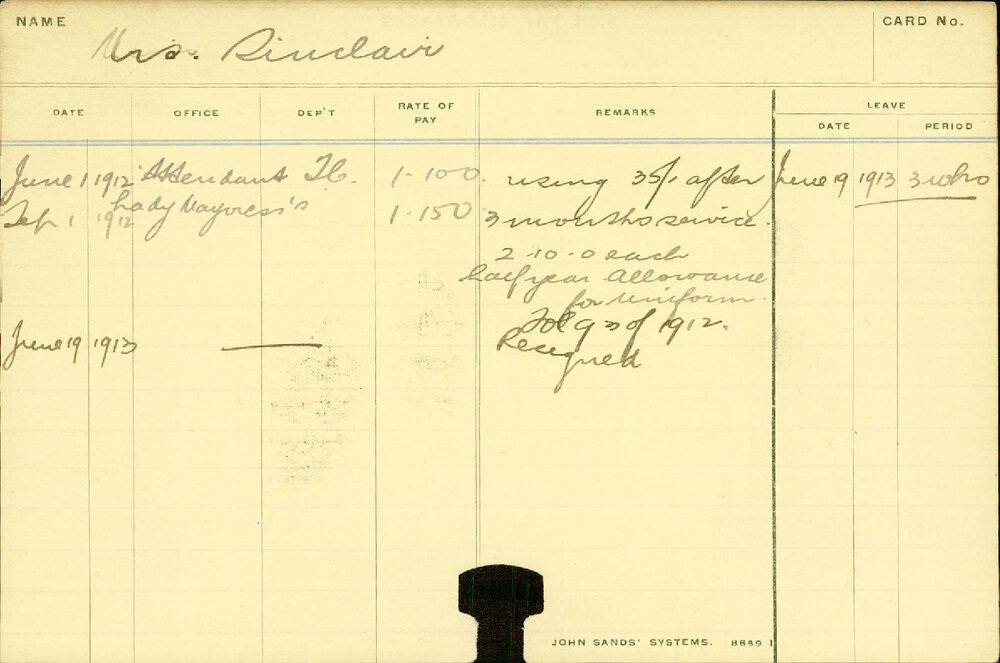 NAME
Mrs. Sinclair
CARD No.
DATE OFFICE DEP'T RATE OF PAY REMARKS LEAVE
DATE PERIOD
June 1 1912 Attendant T.H. 1-10-0. using 35/- after June 19 1913 3 wks
Sep. 1 1912 Lady Mayoress's 1-15-0 3 months service.
2-10-0 each
half year Allowance
for Uniform.
93 of 1912.
June 19 1913 — Resigned
JOHN SANDS' SYSTEMS. 8889